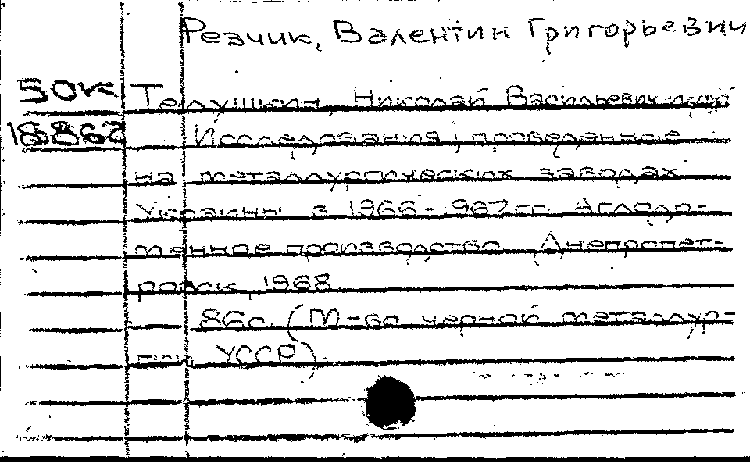 Резчик, Валентин Григорьевич
50к Телушкин, Николай Васильевич и др
18862 Исследования, проведенные
на металлургических заводах
Украины в 1966-967 гг. Аглодо-
менное производство. Днепропет-
ровск, 1968.
86с. (М-во черной металлур-
гии УССР).